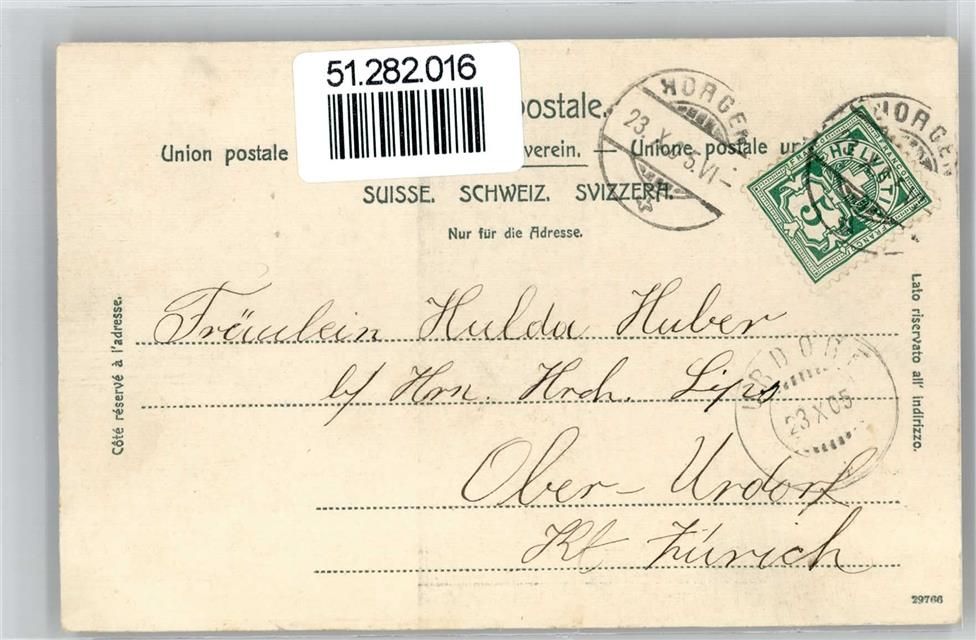 51.282.016
postale.
Union postale verein. — Unione postale un
SUISSE. SCHWEIZ. SVIZZERA.
Nur für die Adresse.
HORGEN
23.X.05.VI–
HORGEN
HELVETIA
FRANCO
5
Côté réservé à l'adresse.
Lato riservato all' indirizzo.
Fräulein Hulda Huber
b/ Hrn. Hrch. Lips
URDORF
23 X 05
Ober-Urdorf
Kt Zürich
29766